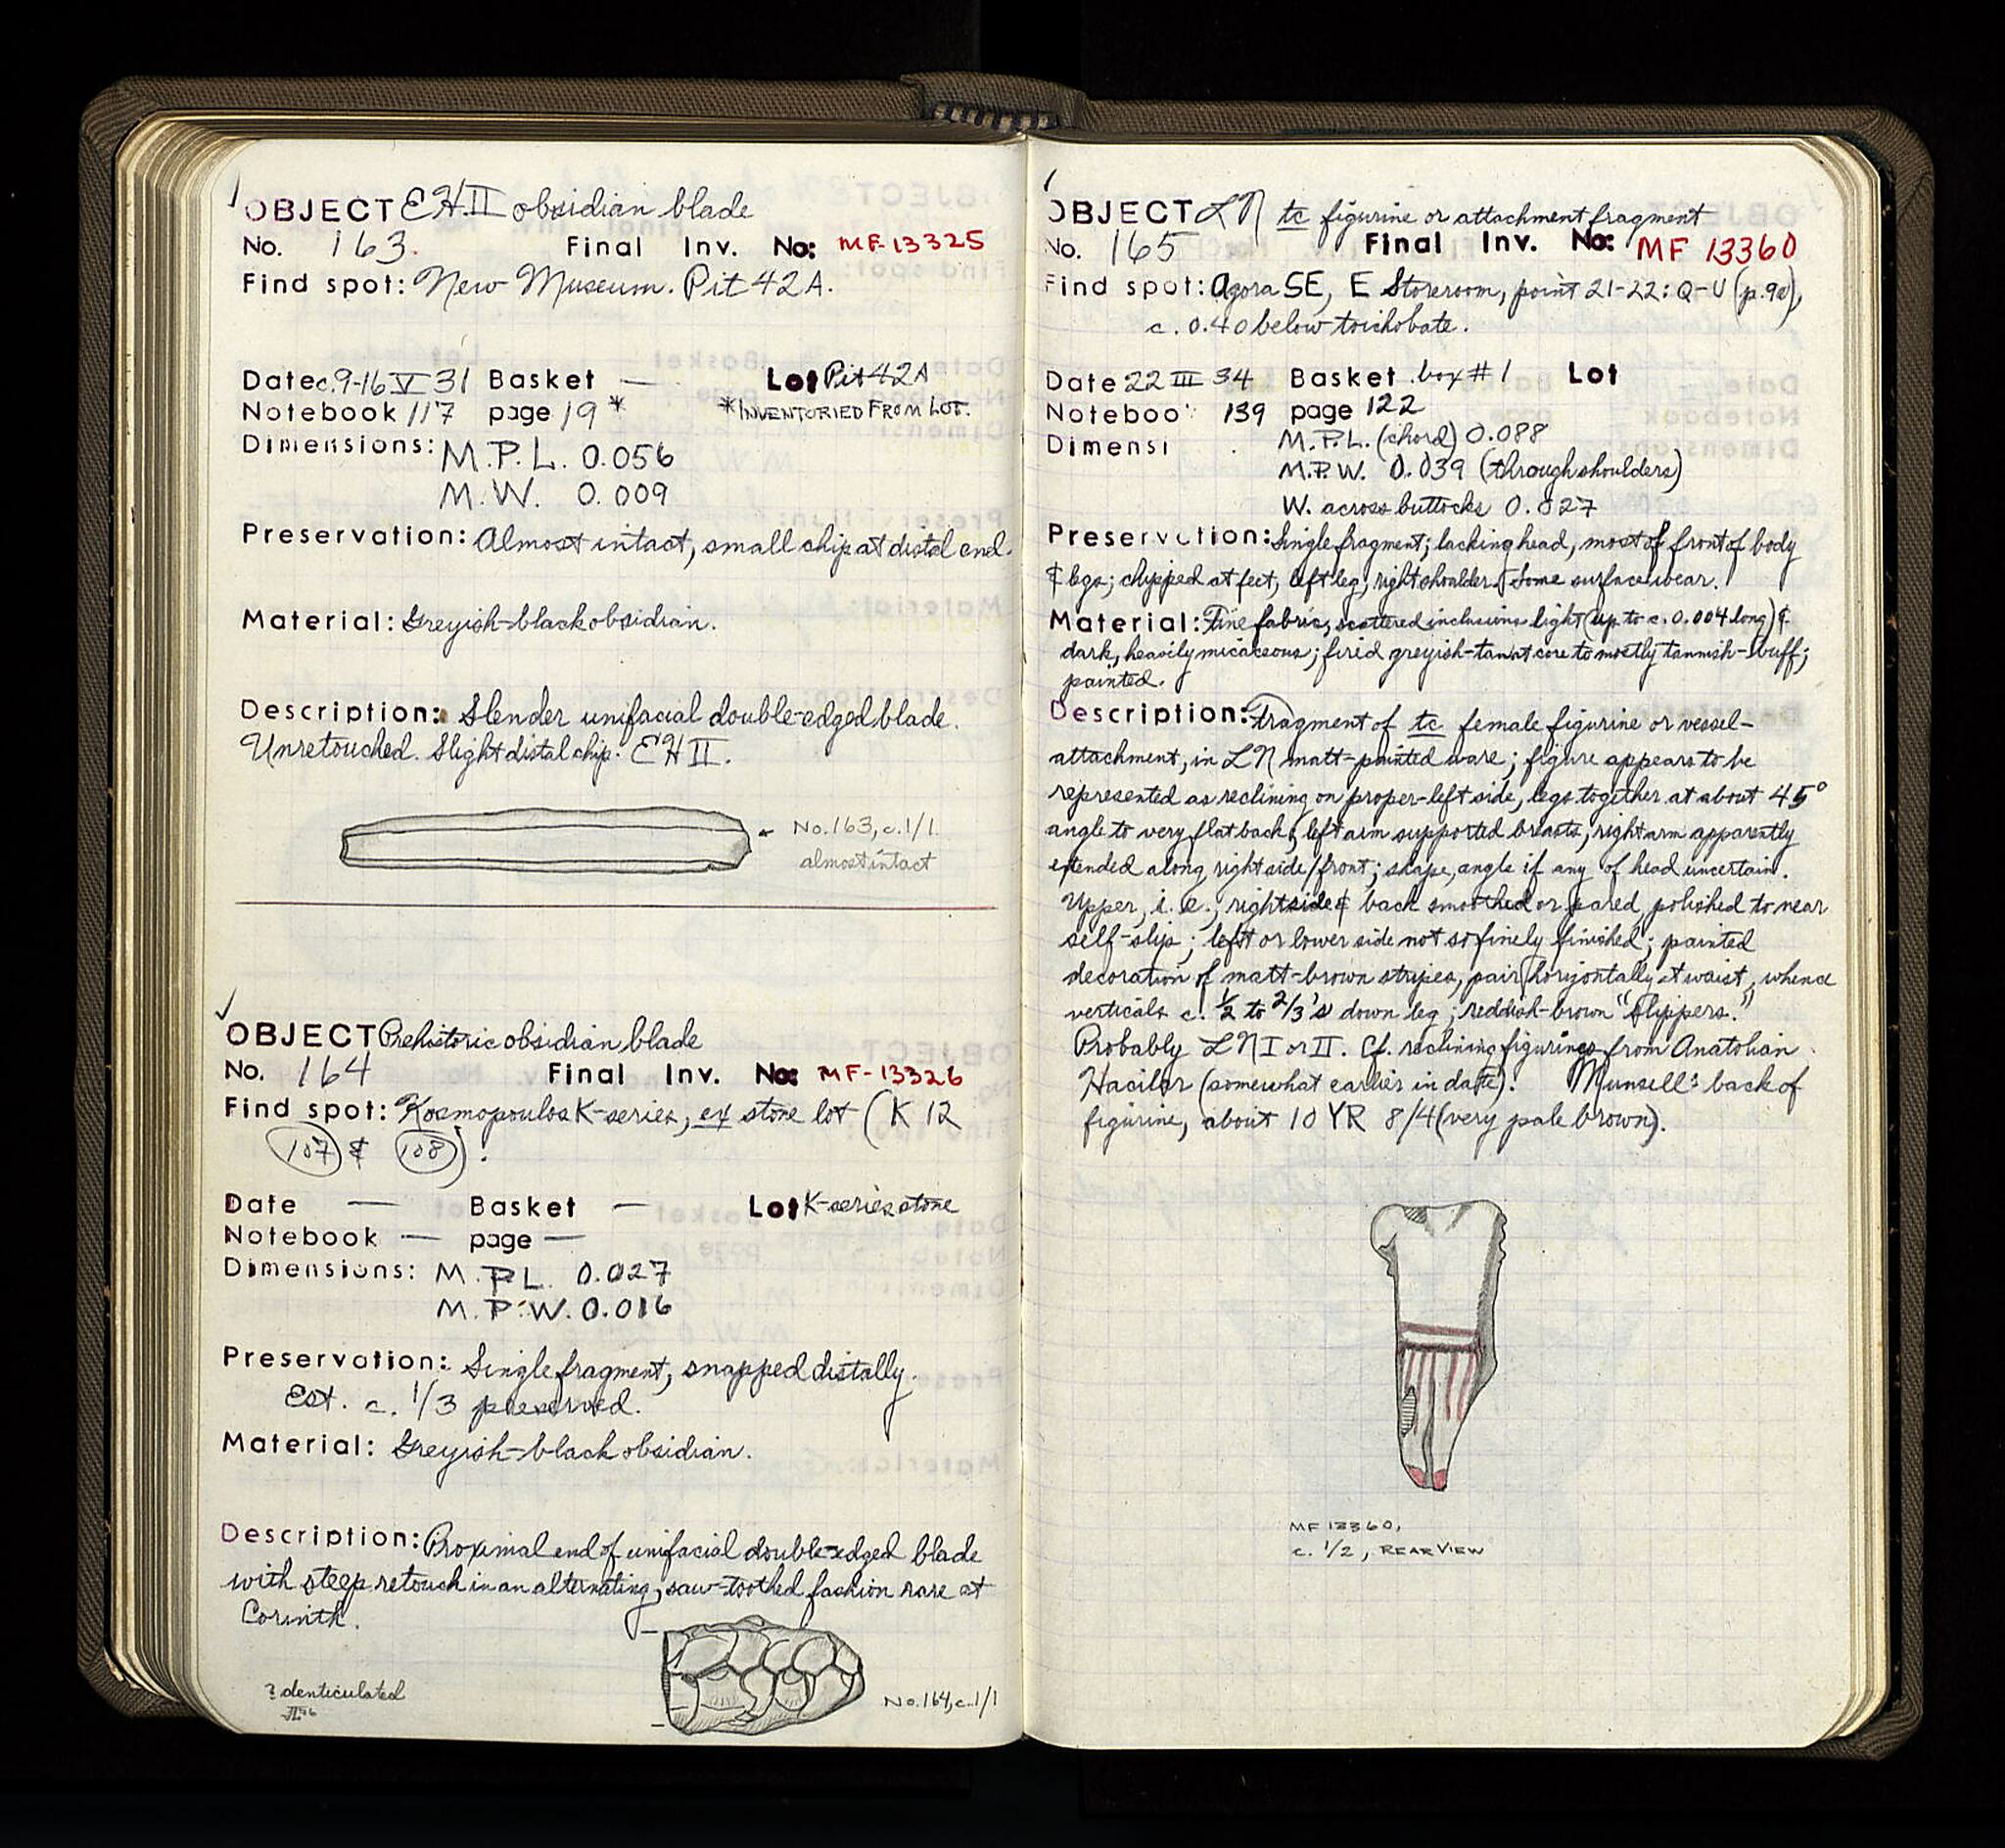 OBJECT EH II obsidian blade
No. 163. Final Inv. No: MF-13325
Find spot: New Museum. Pit 42A.
Date c. 9-16 V 31 Basket — Lot Pit 42A
Notebook 117 page 19* *INVENTORIED FROM LOT.
Dimensions: M.P.L. 0.056
M.W. 0.009
Preservation: Almost intact, small chip at distal end.
Material: Greyish-black obsidian.
Description: Slender unifacial double-edged blade.
Unretouched. Slight distal chip. EH II.
No. 163, c. 1/1.
almost intact
OBJECT Prehistoric obsidian blade
No. 164 Final Inv. No: MF-13326
Find spot: Kosmopoulos K-series, ex stone lot (K 12
107 & 108).
Date — Basket — Lot K-series stone
Notebook — page —
Dimensions: M.P.L. 0.027
M.P.W. 0.016
Preservation: Single fragment, snapped distally.
Est. c. 1/3 preserved.
Material: Greyish-black obsidian.
Description: Proximal end of unifacial double-edged blade
with steep retouch in an alternating, saw-toothed fashion rare at
Corinth.
? denticulated
No. 164, c. 1/1
OBJECT LN tc figurine or attachment fragment
No. 165 Final Inv. No: MF 13360
Find spot: Agora SE, E Storeroom, point 21-22: Q-U (p. 90),
c. 0.40 below toichobate.
Date 22 III 34 Basket box #1 Lot
Noteboo 139 page 122
Dimensi M.P.L. (chord) 0.088
M.P.W. 0.039 (through shoulders)
W. across buttocks 0.027
Preservation: Single fragment; lacking head, most of front of body
& legs; chipped at feet, left leg, right shoulder. Some surface wear.
Material: Fine fabric, scattered inclusions light (up to c. 0.004 long) &
dark, heavily micaceous; fired greyish-tan at core to mostly tannish-buff;
painted.
Description: Fragment of tc female figurine or vessel-
attachment, in LN matt-painted ware; figure appears to be
represented as reclining on proper-left side, legs together at about 45°
angle to very flat back; left arm supported breasts, right arm apparently
extended along right side/front; shape, angle if any of head uncertain.
Upper, i.e., right side & back smoothed or pared, polished to near
self-slip; left or lower side not so finely finished; painted
decoration of matt-brown stripes, pair horizontally at waist, whence
verticals c. 1/2 to 2/3's down leg; reddish-brown "slippers."
Probably LN I or II. Cf. reclining figurines from Anatolian
Hacilar (somewhat earlier in date). Munsell: back of
figurine, about 10 YR 8/4 (very pale brown).
MF 13360,
c. 1/2, REAR VIEW